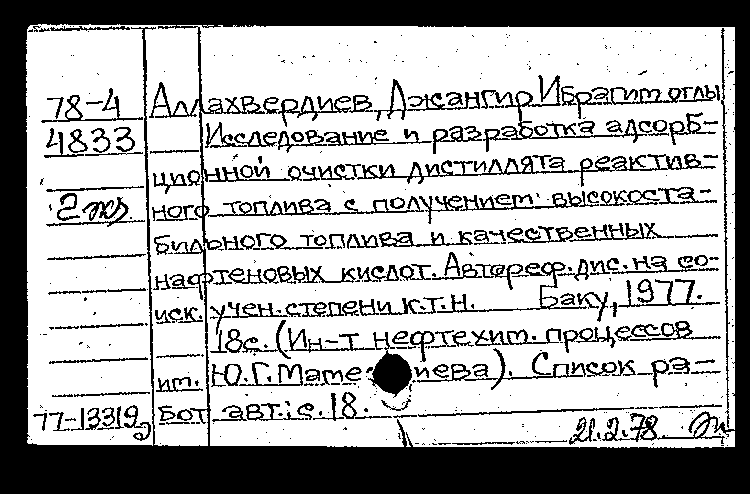 78-4 Аллахвердиев, Джангир Ибрагим оглы
4833 Исследование и разработка адсорб-
ционной очистки дистиллята реактив-
2 экз ного топлива с получением высокоста-
бильного топлива и качественных
нафтеновых кислот. Автореф. дис. на со-
иск. учен. степени к.т.н. Баку, 1977.
18с. (Ин-т нефтехим. процессов
им. Ю.Г. Маме иева). Список ра-
77-13319 бот авт.: с. 18.
21.2.78